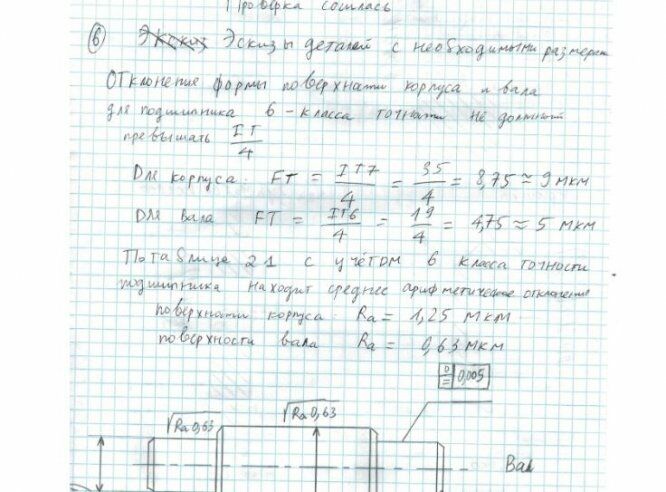 Проверка сошлась
6 Эскиз Эскизы деталей с необходимыми размерам
Отклонение формы поверхности корпуса и вала
для подшипника 6-класса точности не должны
превышать IT/4
Для корпуса FT = IT7/4 = 35/4 = 8,75 ≈ 9 мкм
Для вала FT = IT6/4 = 19/4 = 4,75 ≈ 5 мкм
По таблице 21 с учётом 6 класса точности
подшипника находит среднее арифметическое отклонение
поверхности корпуса Ra = 1,25 мкм.
поверхности вала Ra = 0,63 мкм
0,005
√Ra0,63 √Ra0,63
Вал